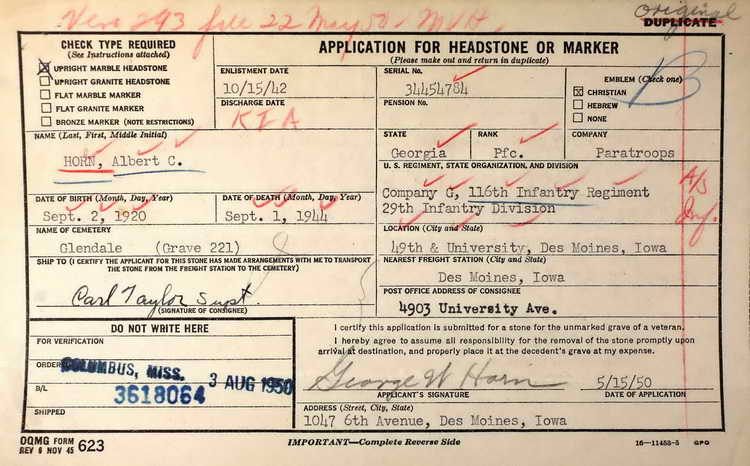 Vera 293 file 22 May 50 - MVH.
Original
DUPLICATE
CHECK TYPE REQUIRED
(See Instructions attached)
UPRIGHT MARBLE HEADSTONE
UPRIGHT GRANITE HEADSTONE
FLAT MARBLE MARKER
FLAT GRANITE MARKER
BRONZE MARKER (NOTE RESTRICTIONS)
APPLICATION FOR HEADSTONE OR MARKER
(Please make out and return in duplicate)
ENLISTMENT DATE
10/15/42
DISCHARGE DATE
KIA
SERIAL No.
34454784
PENSION No.
EMBLEM (Check one)
CHRISTIAN
HEBREW
NONE
B
NAME (Last, First, Middle Initial)
HORN, Albert C.
STATE
Georgia
RANK
Pfc.
COMPANY
Paratroops
U. S. REGIMENT, STATE ORGANIZATION, AND DIVISION
Company G, 116th Infantry Regiment
29th Infantry Division
A/S
Inf.
DATE OF BIRTH (Month, Day, Year)
Sept. 2, 1920
DATE OF DEATH (Month, Day, Year)
Sept. 1, 1944
NAME OF CEMETERY
Glendale (Grave 221)
LOCATION (City and State)
49th & University, Des Moines, Iowa
SHIP TO (I CERTIFY THE APPLICANT FOR THIS STONE HAS MADE ARRANGEMENTS WITH ME TO TRANSPORT
THE STONE FROM THE FREIGHT STATION TO THE CEMETERY)
Carl Taylor Supt.
(SIGNATURE OF CONSIGNEE)
NEAREST FREIGHT STATION (City and State)
Des Moines, Iowa
POST OFFICE ADDRESS OF CONSIGNEE
4903 University Ave.
DO NOT WRITE HERE
FOR VERIFICATION
ORDER
COLUMBUS, MISS.
3 AUG 1950
B/L
3618064
SHIPPED
I certify this application is submitted for a stone for the unmarked grave of a veteran.
I hereby agree to assume all responsibility for the removal of the stone promptly upon
arrival at destination, and properly place it at the decedent's grave at my expense.
George W Horn
5/15/50
APPLICANT'S SIGNATURE
DATE OF APPLICATION
ADDRESS (Street, City, State)
1047 6th Avenue, Des Moines, Iowa
OQMG FORM
REV 6 NOV 45 623
IMPORTANT—Complete Reverse Side
16—11453-5 GPO